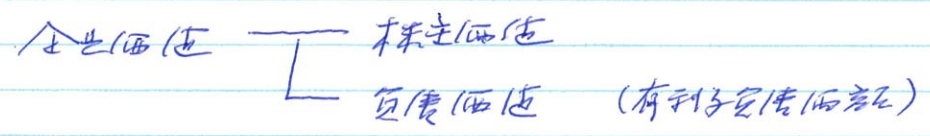 企业価値 株主価値
負債価値 (有利子負債価額)